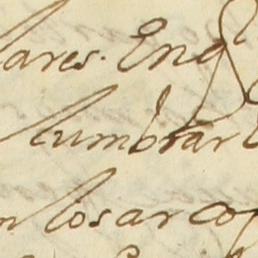 lares. Eng
lumbrar
n los arco